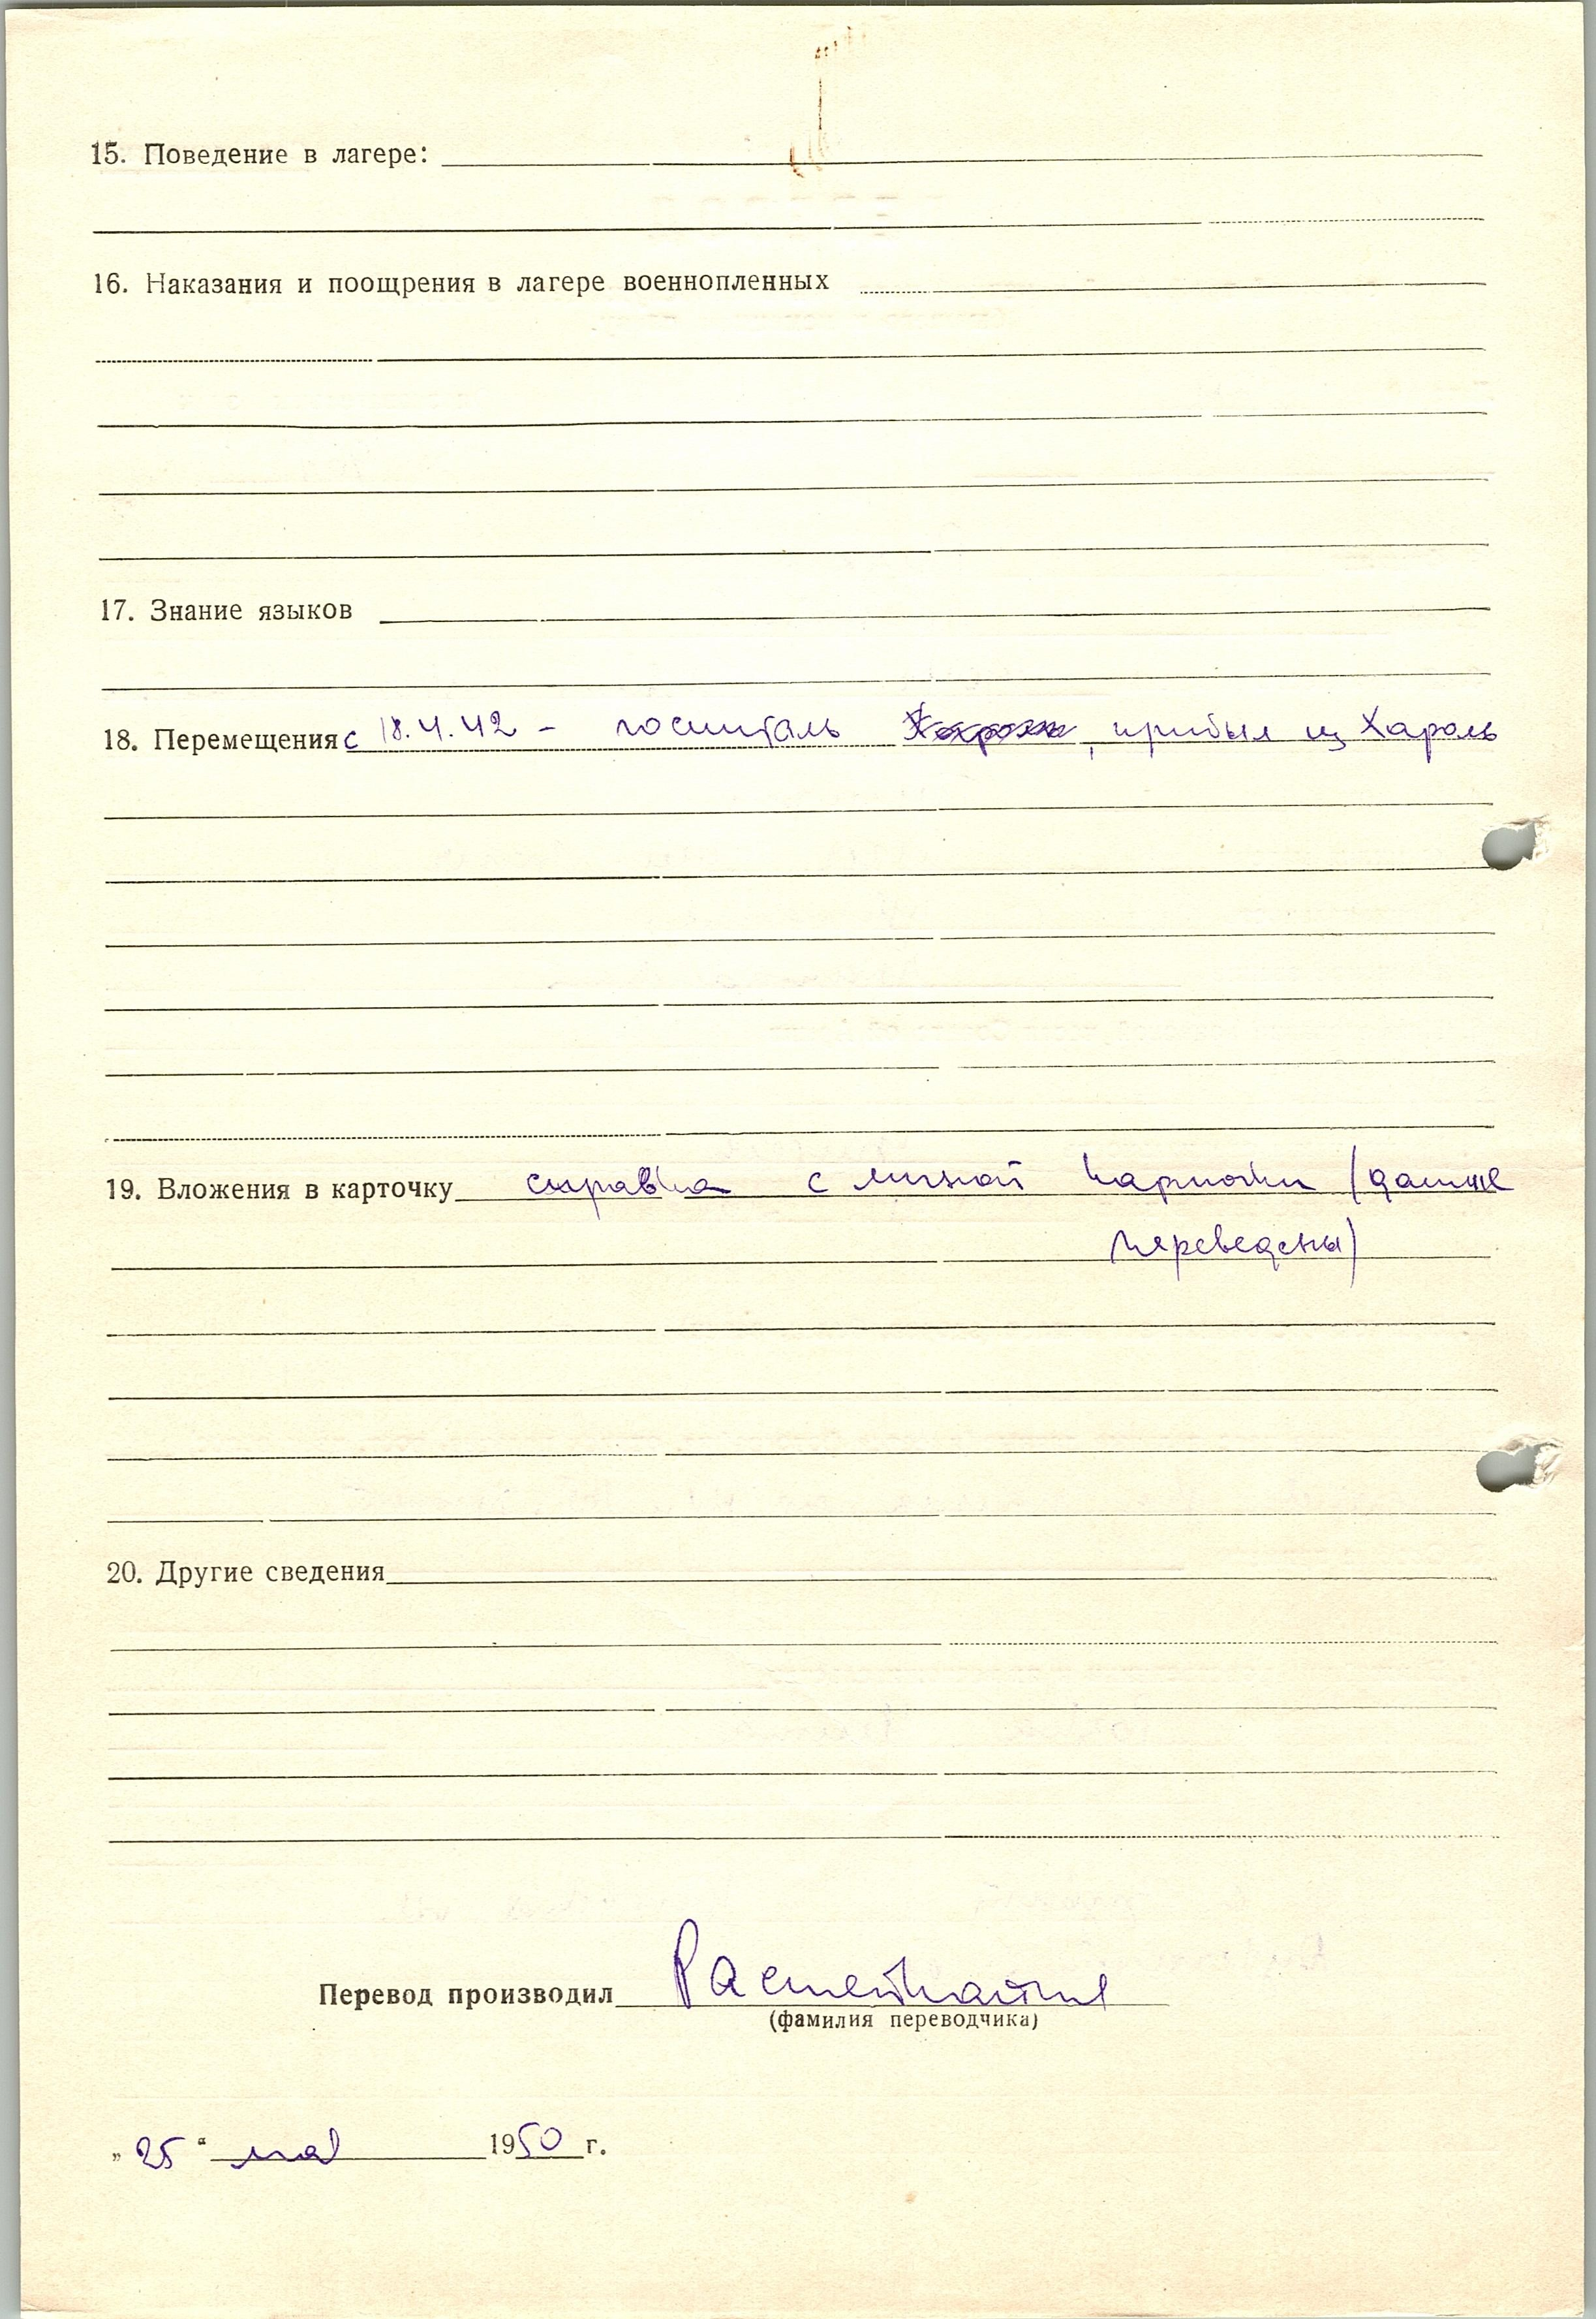 15. Поведение в лагере:
16. Наказания и поощрения в лагере военнопленных
17. Знание языков
18. Перемещения с 18.4.42 - госпиталь , прибыл из Хароль
19. Вложения в карточку справка с личной карточки (данные
переведены)
20. Другие сведения
Перевод производил
(фамилия переводчика)
„25“ мая 1950 г.